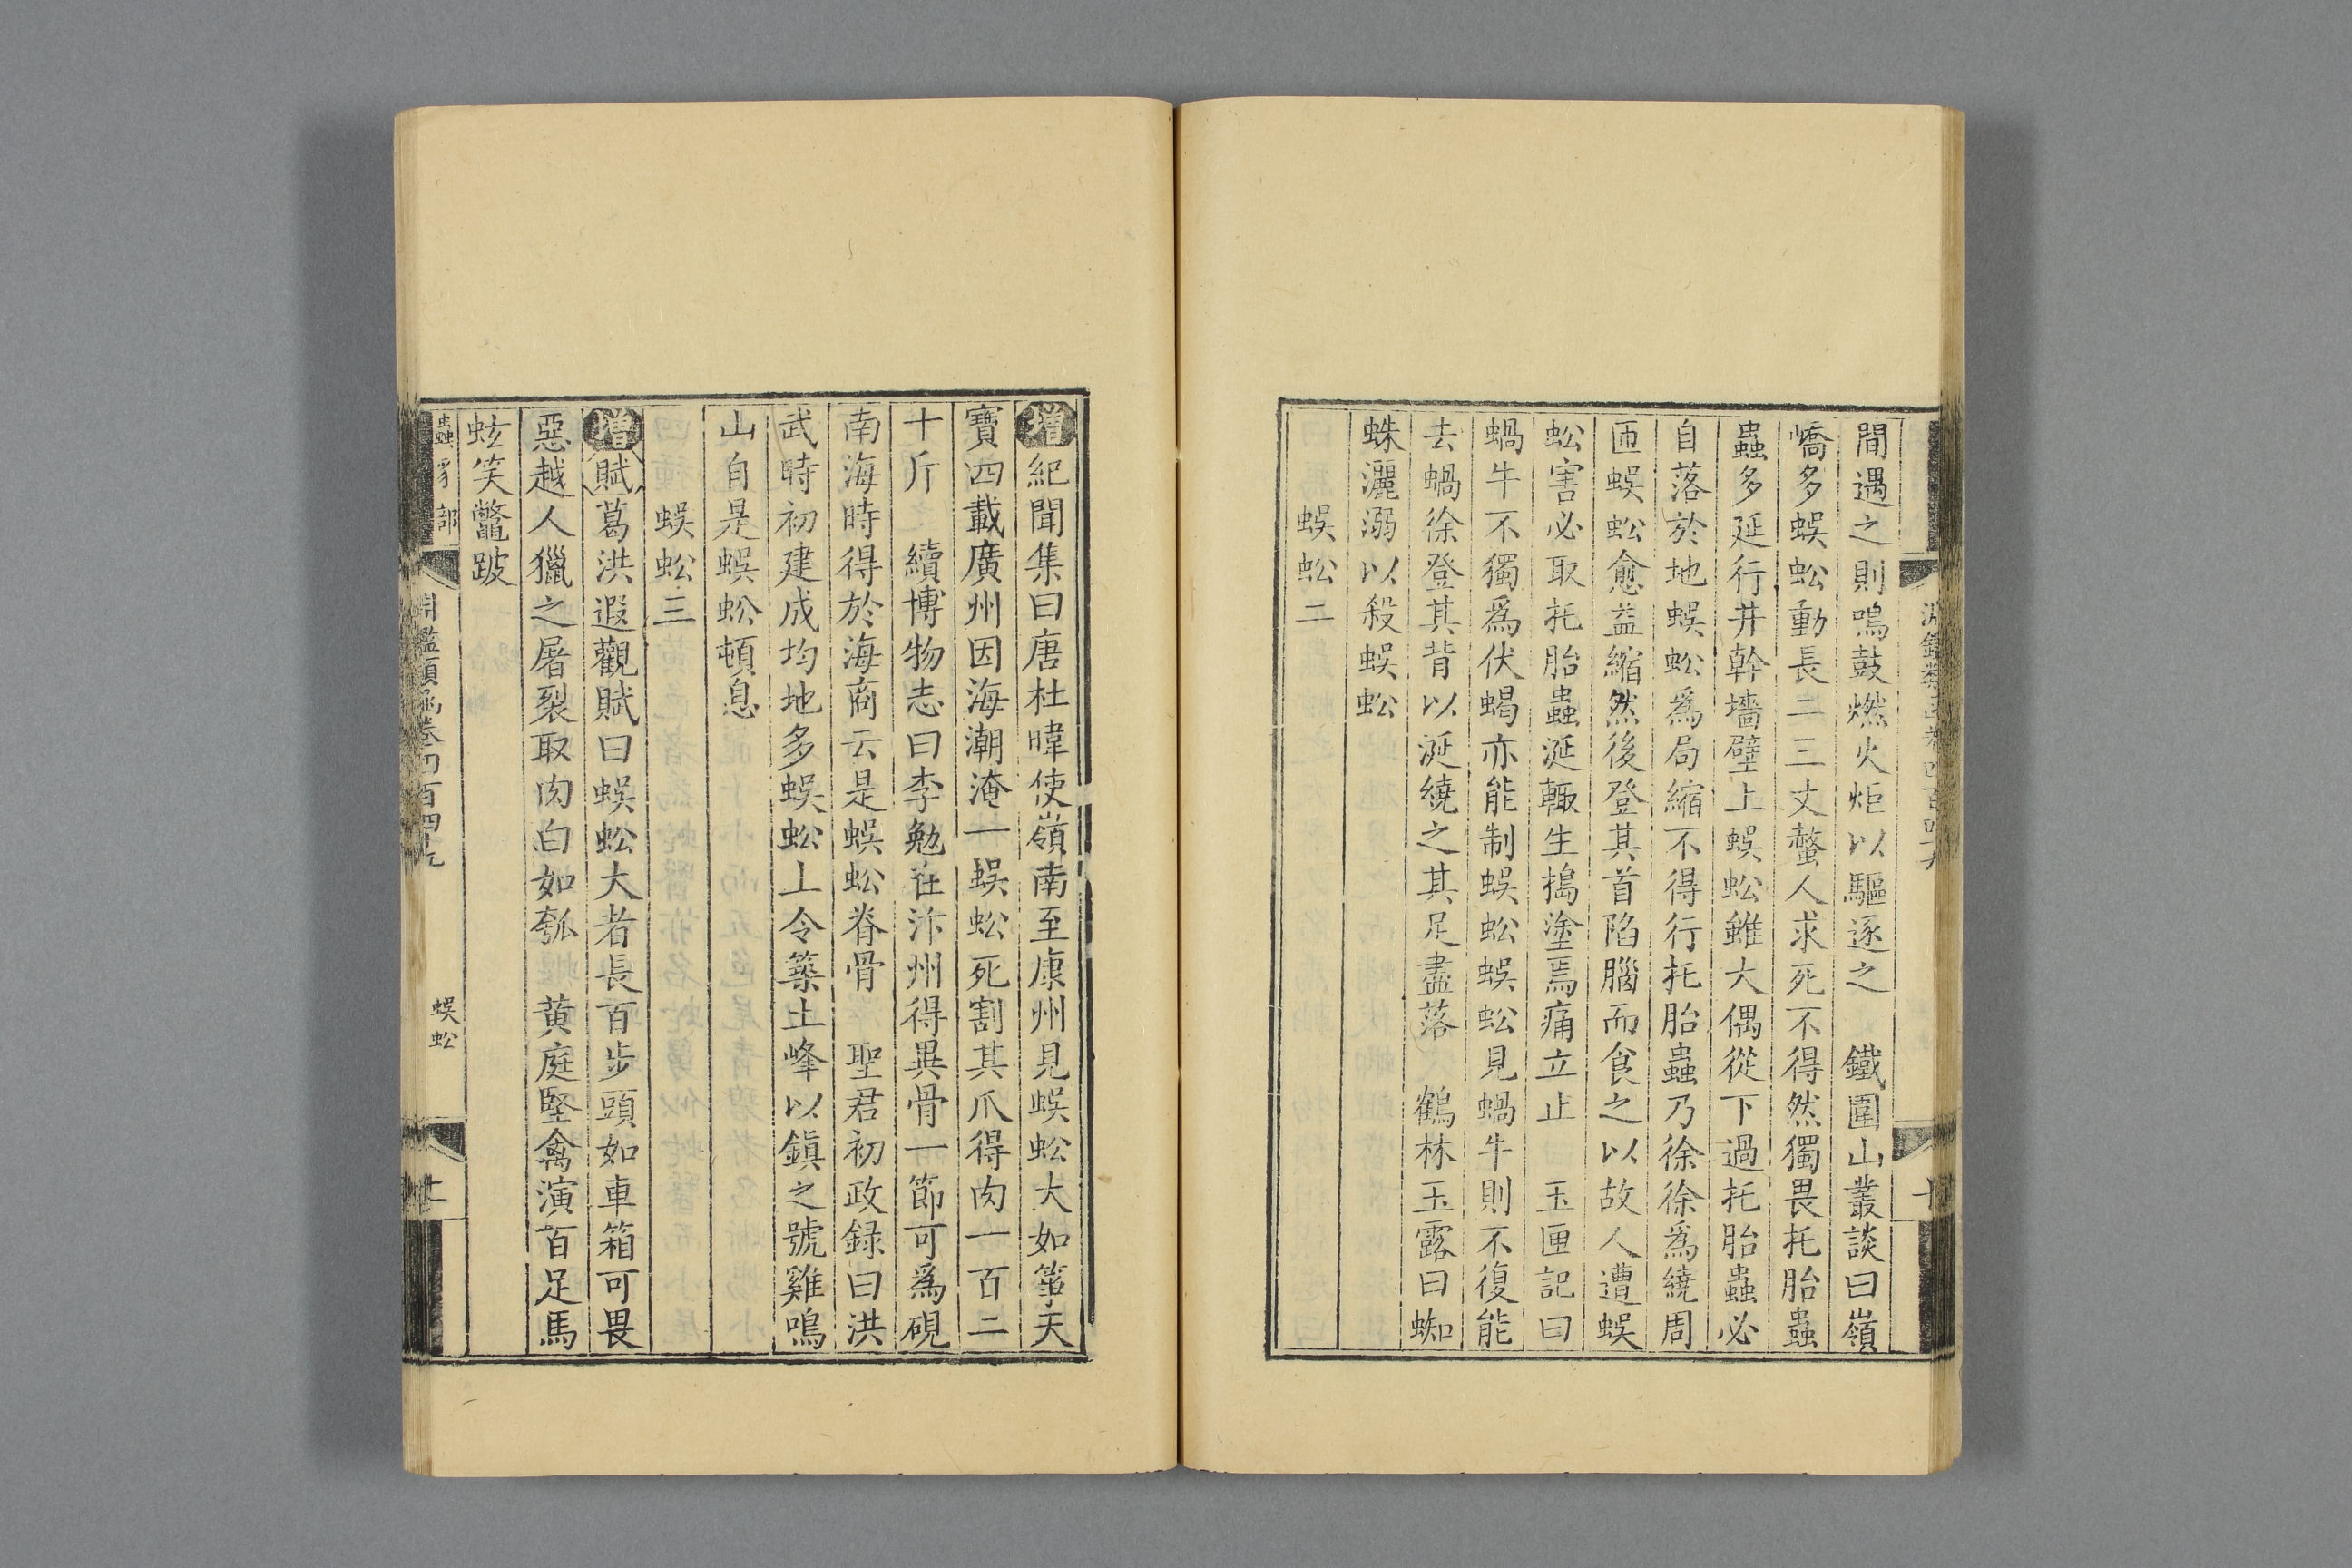 間遇之則鳴鼓燃火炬以驅逐之　鐵圍山叢談曰嶺
嶠多蜈蚣動長二三丈螫人求死不得然獨畏托胎蟲
蟲多延行井幹墻壁上蜈蚣雖大偶從下過托胎蟲必
自落於地蜈蚣爲局縮不得行托胎蟲乃徐徐爲繞周
匝蜈蚣愈益縮然後登其首陷腦而食之以故人遭蜈
蚣害必取托胎蟲涎輙生搗塗焉痛立止　玉匣記曰
蝸牛不獨爲伏蝎亦能制蜈蚣蜈蚣見蝸牛則不復能
去蝸徐登其背以涎繞之其足盡落　鶴林玉露曰蜘
蛛灑溺以殺蜈蚣
蜈蚣二
增紀聞集曰唐杜暐使嶺南至康州見蜈蚣大如箏天
寶四載廣州因海潮淹一蜈蚣死割其爪得肉一百二
十斤　續博物志曰李勉在汴州得異骨一節可爲硯
南海時得於海商云是蜈蚣脊骨　聖君初政録曰洪
武時初建成均地多蜈蚣上令築土峰以鎮之號雞鳴
山自是蜈蚣頓息
蜈蚣三
增賦葛洪遐觀賦曰蜈蚣大者長百步頭如車箱可畏
惡越人獵之屠裂取肉白如瓠　黄庭堅禽演百足馬
蚿笑鼈跛
蟲豸部
淵鑑類函卷四百四九
蜈蚣